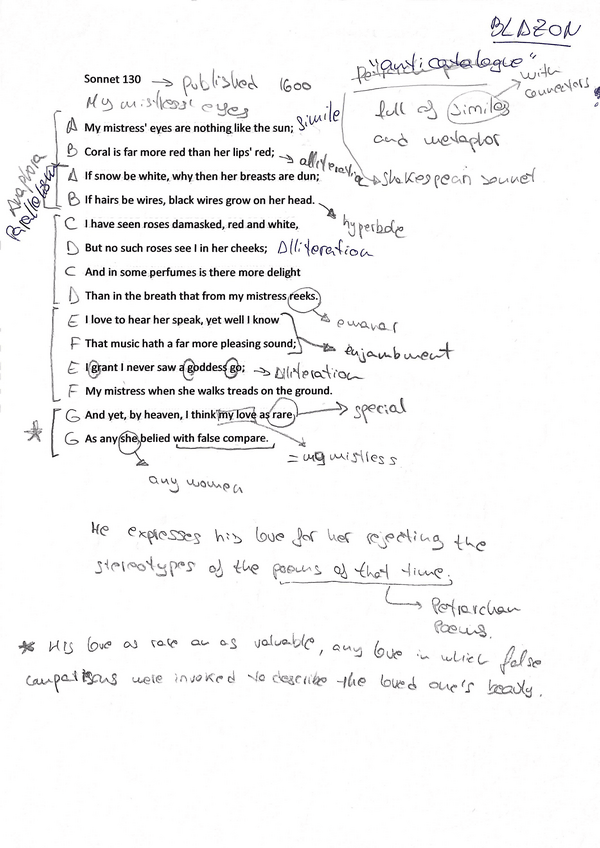 BLAZON
"anticatalogue"
with connectors
Sonnet 130 → published 1600
My mistress' eyes
full of similes
and metaphor
Shakespearian sonnet
Anaphora
Parallelism
A My mistress' eyes are nothing like the sun; Simile
B Coral is far more red than her lips' red; → alliteration
A If snow be white, why then her breasts are dun;
B If hairs be wires, black wires grow on her head.
hyperbole
C I have seen roses damasked, red and white,
D But no such roses see I in her cheeks; Alliteration
C And in some perfumes is there more delight
D Than in the breath that from my mistress reeks.
E I love to hear her speak, yet well I know
F That music hath a far more pleasing sound;
enjambment
E I grant I never saw a goddess go; → Alliteration
F My mistress when she walks treads on the ground.
G And yet, by heaven, I think my love as rare → special
G As any she belied with false compare.
= my mistress
any women
He expresses his love for her rejecting the
stereotypes of the poems of that time.
Petrarchan
Poems.
* His love as rare an as valuable, any love in which false
comparisons were invoked to describe the loved one's beauty.